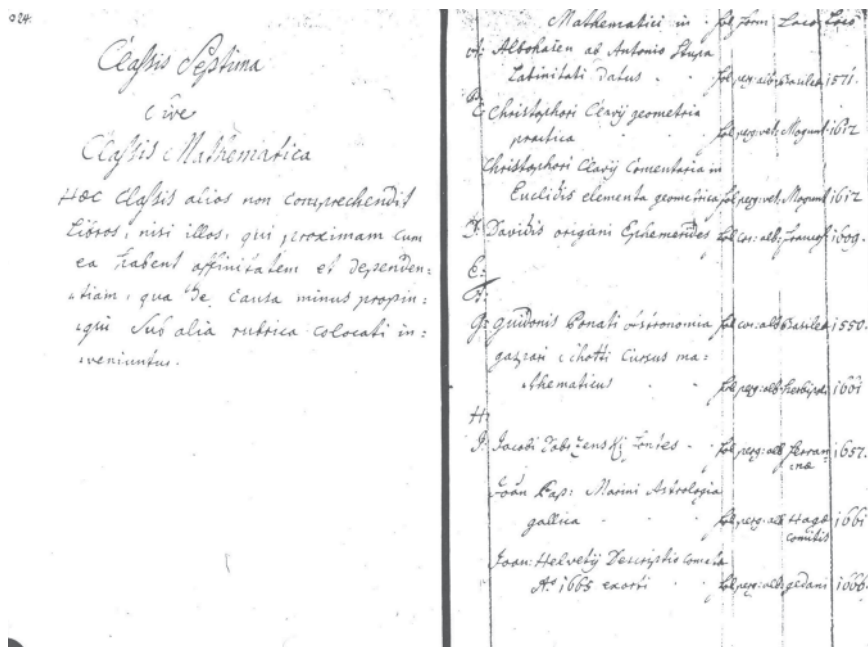 024.
Classis Septima
sive
Classis Mathematica
Hæc Classis alios non comprechendit
Libros, nisi illos, qui proximam cum
ea habent affinitatem et dependen:
:tiam, qua de causa minus propin:
:qui sub alia rubrica colocati in:
:veniuntur.
Mathematici in fol Form Loco
A: Albohazen ab Antonio Stupa
Latinitati datus fol perg: alb: Basilea 1571.
C Christophori Clavij geometria
practica fol perg: vet: Mogunt: 1612
Christophori Clavij Comentaria in
Euclidis elementa geometrica fol perg: vet: Mogunt 1612
D: Davidis origani Ephemerides fol cor: alb: Francof 1609.
E:
F:
G: guidonis Bonati Astronomia fol cor: alb Basilea 1550.
gaspari Schotti Cursus ma:
:thematicus fol perg: alb: herbipoli 1661
H:
J: Jacobi fol perg: alb ferran 1657.
Joan Bap: Morini Astrologia
gallica fol perg: alb Hagæ 1661
comitis
Joan: Helvetij Descriptio cometæ
Aº 1665 exorti fol perg: alb gedani 1666.